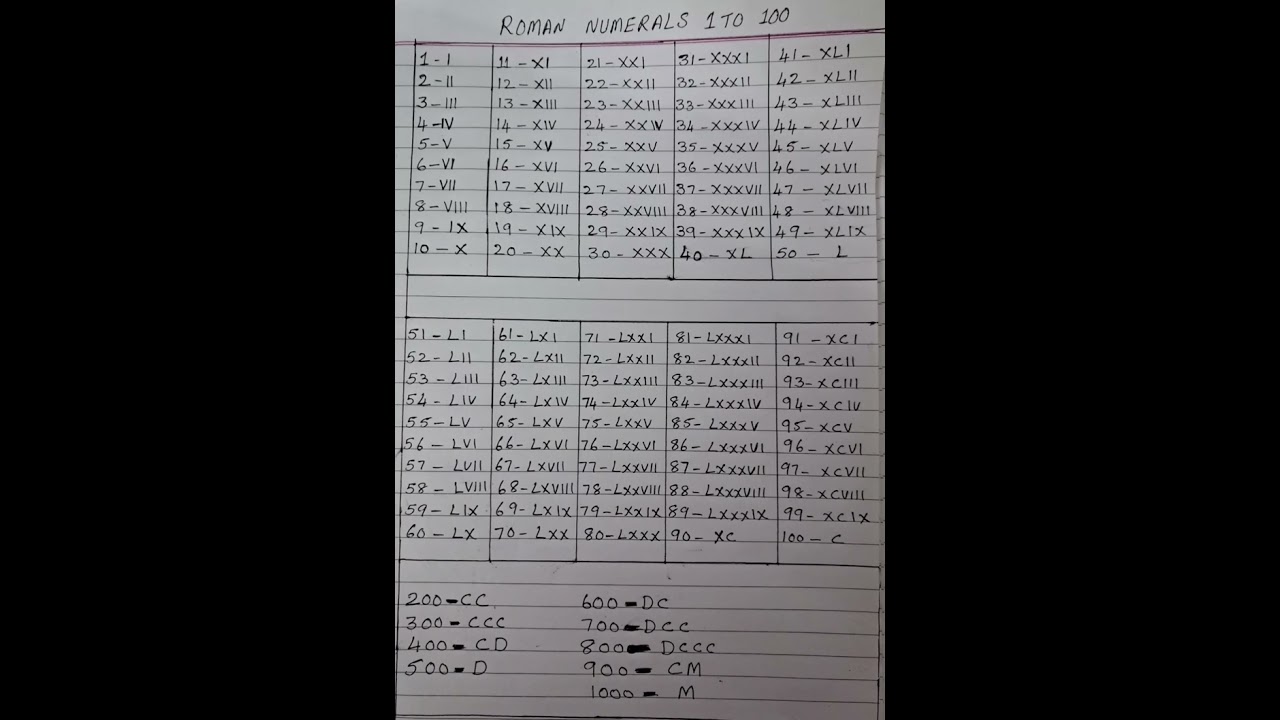 ROMAN NUMERALS 1 TO 100
1 - I 11 - XI 21 - XXI 31 - XXXI 41 - XLI
2 - II 12 - XII 22 - XXII 32 - XXXII 42 - XLII
3 - III 13 - XIII 23 - XXIII 33 - XXXIII 43 - XLIII
4 - IV 14 - XIV 24 - XXIV 34 - XXXIV 44 - XLIV
5 - V 15 - XV 25 - XXV 35 - XXXV 45 - XLV
6 - VI 16 - XVI 26 - XXVI 36 - XXXVI 46 - XLVI
7 - VII 17 - XVII 27 - XXVII 37 - XXXVII 47 - XLVII
8 - VIII 18 - XVIII 28 - XXVIII 38 - XXXVIII 48 - XLVIII
9 - IX 19 - XIX 29 - XXIX 39 - XXXIX 49 - XLIX
10 - X 20 - XX 30 - XXX 40 - XL 50 - L
51 - LI 61 - LXI 71 - LXXI 81 - LXXXI 91 - XCI
52 - LII 62 - LXII 72 - LXXII 82 - LXXXII 92 - XCII
53 - LIII 63 - LXIII 73 - LXXIII 83 - LXXXIII 93 - XCIII
54 - LIV 64 - LXIV 74 - LXXIV 84 - LXXXIV 94 - XCIV
55 - LV 65 - LXV 75 - LXXV 85 - LXXXV 95 - XCV
56 - LVI 66 - LXVI 76 - LXXVI 86 - LXXXVI 96 - XCVI
57 - LVII 67 - LXVII 77 - LXXVII 87 - LXXXVII 97 - XCVII
58 - LVIII 68 - LXVIII 78 - LXXVIII 88 - LXXXVIII 98 - XCVIII
59 - LIX 69 - LXIX 79 - LXXIX 89 - LXXXIX 99 - XCIX
60 - LX 70 - LXX 80 - LXXX 90 - XC 100 - C
200 - CC 600 - DC
300 - CCC 700 - DCC
400 - CD 800 - DCCC
500 - D 900 - CM
1000 - M